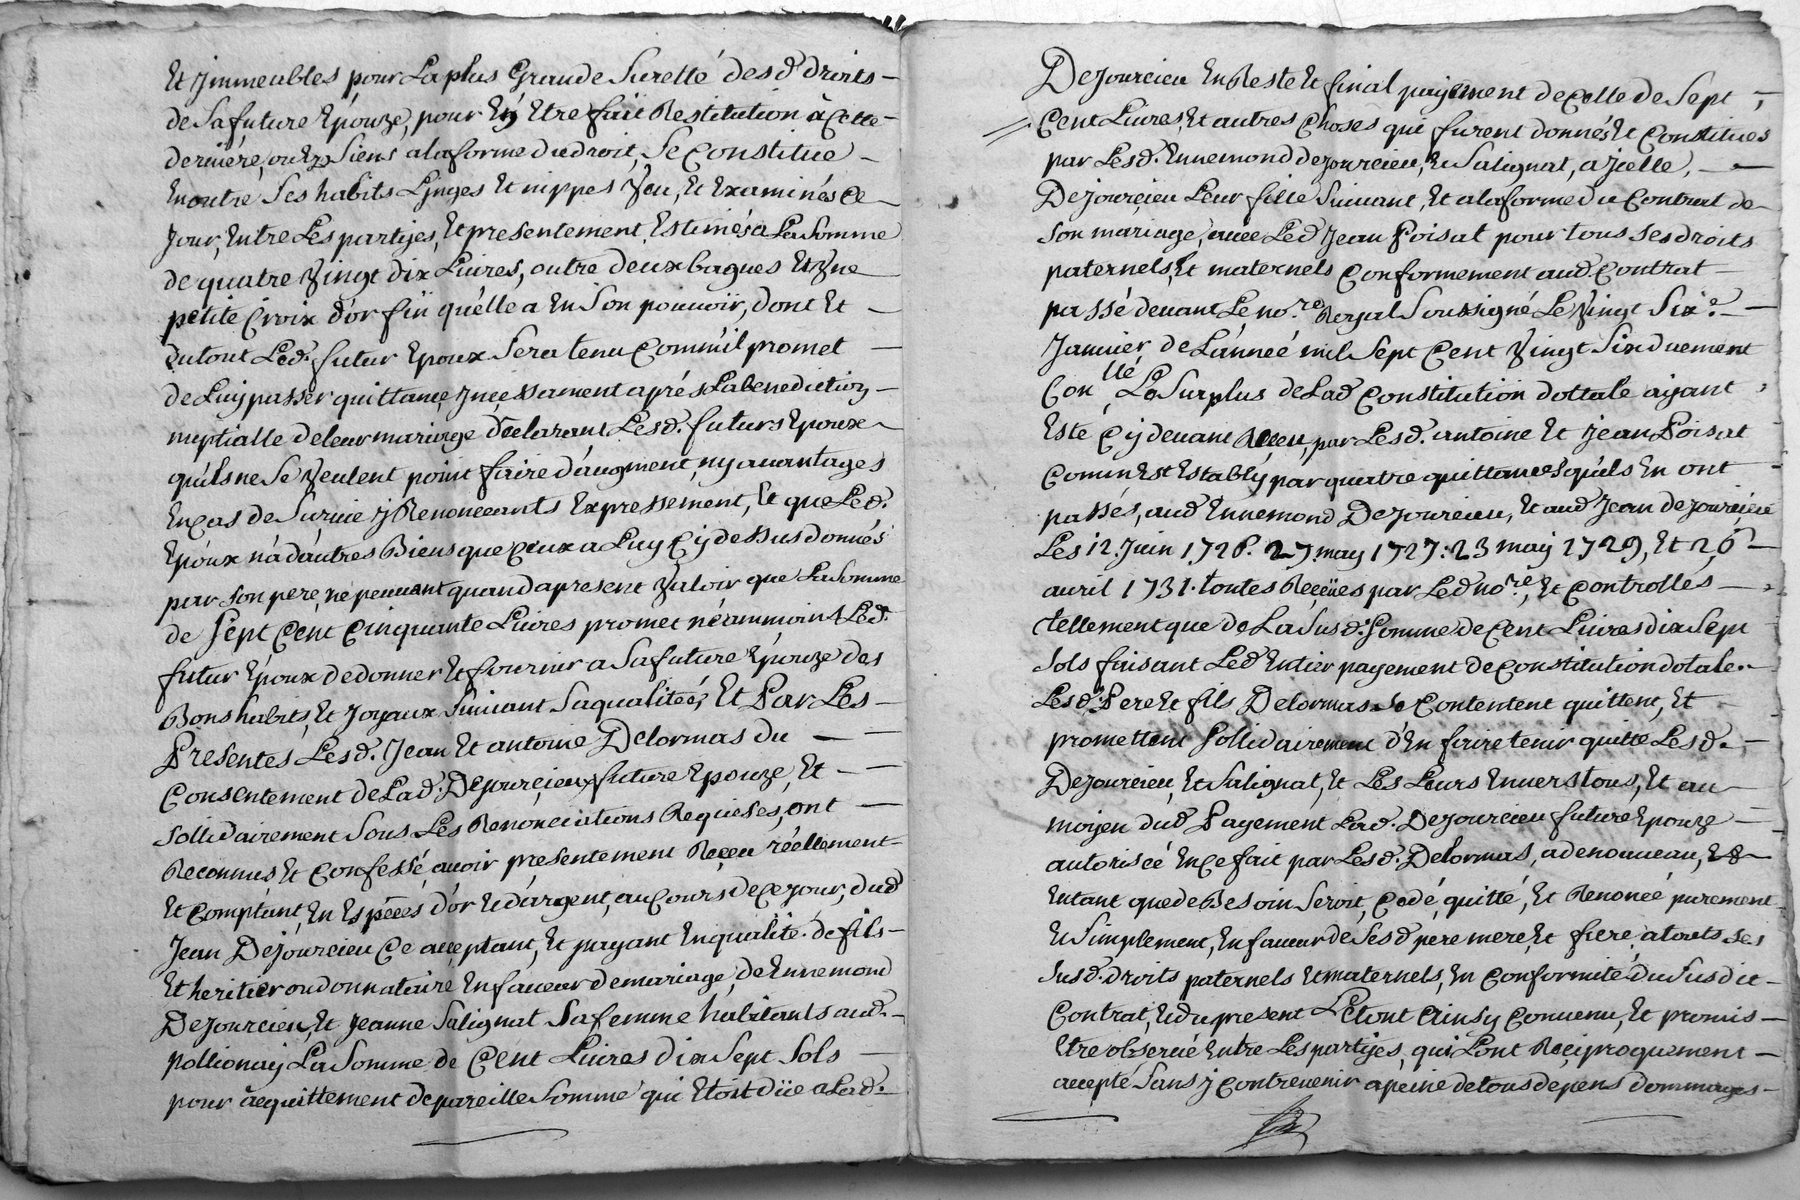 Et jmmeubles pour La plus Grande Suretté desd. droits
de Sa future Epouze, pour En Etre fait Restitution à Cette
derniére, ou Ez Siens a la forme du droit, Se Constitue
En outre Ses habits Linges Et nippes Veu, Et Examinés Ce
Jour, Entre Les partyes, Et presentement Estimés a La Somme
de quatre Vingt dix Livres, outre deux bagues Et Vne
petite Croix d'or fin qu'élle a En Son pouvoir, dont Et
dutout Led. futur Epoux Sera tenu Comm'il promet
de Luy passer quittance jncessament aprés La benediction
nuptialle de leur mariage déclarant Lesd. futurs Epoux
qu'ils ne Se Veulent point faire d'augment, ny avantages
En cas de Survie y Renonceants Expressement, Et que Led.
Epoux n'a d'autres Biens que Ceux a Luy Cy dessus donnés
par Son pere, ne peuvant quand apresent Valoir que La Somme
de Sept Cent Cinquante Livres promet néanmoins Led.
futur Epoux de donner Et fournir a Sa future Epouze des
Bons habits, Et Joyaux Suivant Sa qualiteé, Et Par Les
Presentes Lesd. Jean Et antoine Delormas du
Consentement de Lad. Dejourcieu future Epouze, Et
sollidairement Sous Les Renonciations Requises, ont
Reconnus, Et Confessé, avoir presentement Reçeu réellement
Et Comptant, En Espêces d'or Et d'argent, au Cours de Ce jour, dud
Jean Dejourcieu Ce acceptant, Et payant En qualite de fils
Et heritier ou donnataire En faveur de mariage, de Ennemond
Dejourcieu, Et Jeanne Salignat Sa femme habitants aud.
pollionay La Somme de Cent Livres dix Sept Sols
pour acquittement de pareille Somme qui Etoit düe a Lad.
Dejourcieu En Reste Et final payement de Celle de Sept
Cent Livres, Et autres Choses qui furent donnés Et Constitues
par Lesd. Ennemond dejourcieu, Et Salignat, a jcelle,
Dejourcieu Leur fille Suivant, Et a la forme du Contrat de
Son mariage, avec Led Jean Poisat pour tous Ses droits
paternels, Et maternels Conformement aud. Contrat
passé devant Le no.re Royal Soussigné Le Vingt Six.e
Janvier de L'anneé mil Sept Cent Vingt Six duement
Con.llé, Le Surplus de Lad Constitution dottale aÿant
Esté Cy devant Receu, par Lesd. antoine Et Jean Poisat
Comm Est Estably par quatre quittances qu'ils En ont
passés, aud Ennemond Dejourcieu, Et aud Jean dejourcieu
Les 12. Juin 1726. 27. may 1727: 23 may 1729, Et 26
avril 1731. toutes Reçeües par Led no.re, Et Controllés
tellement que de La Susd. Somme de Cent Livres dix Sept
Sols faisant Led Entier payement de Constitution dotale.
Lesd. Pere Et fils Delormas Se Contentent quittent, Et
promettent Sollidairement d'En faire tenir quitte Lesd.
Dejourcieu, Et Salignat, Et Les Leurs Envers tous, Et au
moyen dud Payement Lad. Dejourcieu future Epouze
autorisée En Ce fait par Lesd. Delormas, a de nouveau, Et
En tant que de Besoin Seroit, Cedé, quitté, Et Renoncé purement
Et Simplement, En faveur de Sesd pere mere Et frere, a touts Ses
Susd. droits paternels Et maternels, En Conformité du Susdit
Contrat, Et du present Le tout Ainsy Convenu, Et promis
Etre observé Entre Les partyes, qui L'ont Reçiproquement
accepté Sans y Contrevenir a peine de tous depens dommages